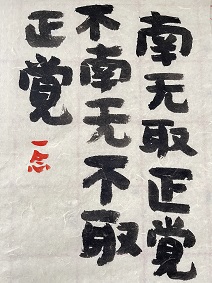 南无取正覚
不南无不取
正覚
一念